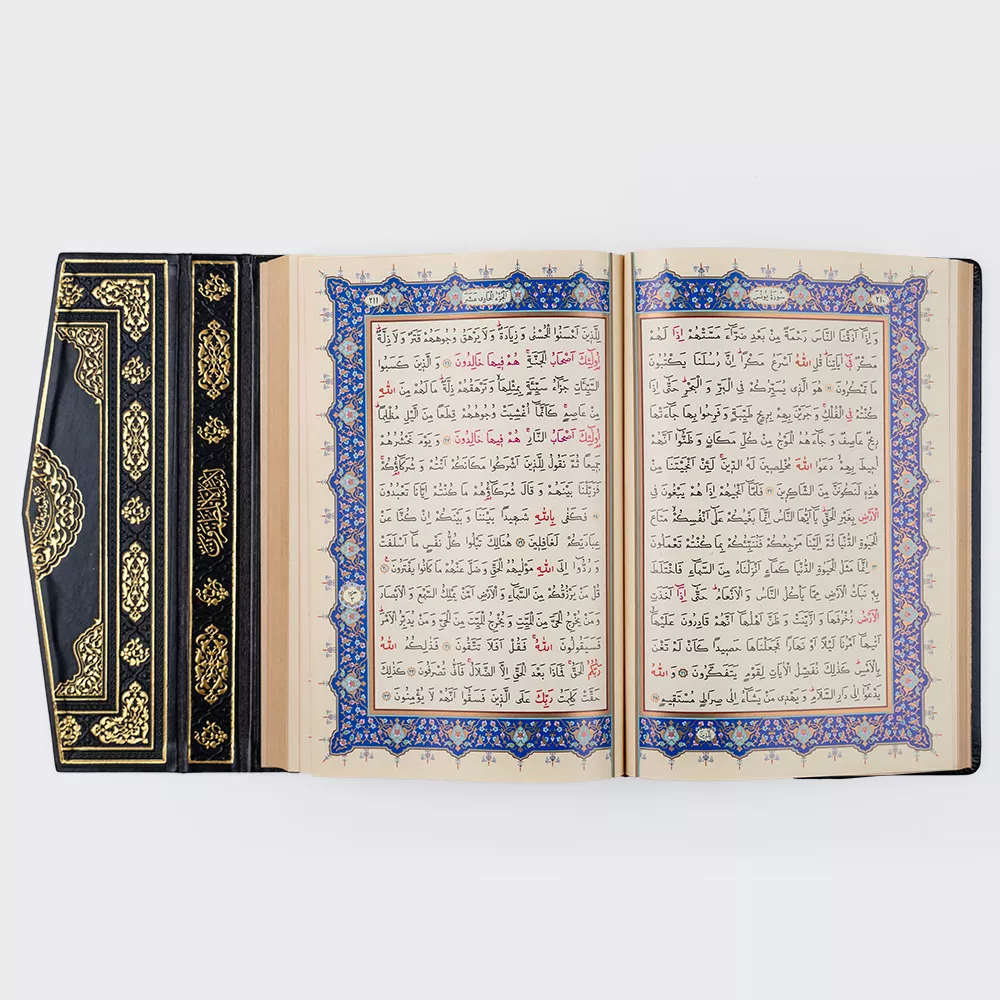 سُورَةُ يُونُسَ
٢١٠
وَاِذَٓا اَذَقْنَا النَّاسَ رَحْمَةً مِنْ بَعْدِ ضَرَّٓاءَ مَسَّتْهُمْ اِذَا لَهُمْ
مَكْرٌ فٖٓي اٰيَاتِنَا قُلِ اللّٰهُ اَسْرَعُ مَكْرًا اِنَّ رُسُلَنَا يَكْتُبُونَ
مَا تَمْكُرُونَ ٢١ هُوَ الَّذٖي يُسَيِّرُكُمْ فِي الْبَرِّ وَالْبَحْرِ حَتّٰٓى اِذَا
كُنْتُمْ فِي الْفُلْكِ وَجَرَيْنَ بِهِمْ بِرٖيحٍ طَيِّبَةٍ وَفَرِحُوا بِهَا جَٓاءَتْهَا
رٖيحٌ عَاصِفٌ وَجَٓاءَهُمُ الْمَوْجُ مِنْ كُلِّ مَكَانٍ وَظَنُّٓوا اَنَّهُمْ
اُحٖيطَ بِهِمْ دَعَوُا اللّٰهَ مُخْلِصٖينَ لَهُ الدّٖينَ لَئِنْ اَنْجَيْتَنَا مِنْ
هٰذِهٖ لَنَكُونَنَّ مِنَ الشَّاكِرٖينَ ٢٢ فَلَمَّٓا اَنْجٰيهُمْ اِذَا هُمْ يَبْغُونَ فِي
الْاَرْضِ بِغَيْرِ الْحَقِّ يَٓا اَيُّهَا النَّاسُ اِنَّمَا بَغْيُكُمْ عَلٰٓى اَنْفُسِكُمْ مَتَاعَ
الْحَيٰوةِ الدُّنْيَا ثُمَّ اِلَيْنَا مَرْجِعُكُمْ فَنُنَبِّئُكُمْ بِمَا كُنْتُمْ تَعْمَلُونَ
٢٣ اِنَّمَا مَثَلُ الْحَيٰوةِ الدُّنْيَا كَمَٓاءٍ اَنْزَلْنَاهُ مِنَ السَّمَٓاءِ فَاخْتَلَطَ
بِهٖ نَبَاتُ الْاَرْضِ مِمَّا يَأْكُلُ النَّاسُ وَالْاَنْعَامُ حَتّٰٓى اِذَٓا اَخَذَتِ
الْاَرْضُ زُخْرُفَهَا وَازَّيَّنَتْ وَظَنَّ اَهْلُهَٓا اَنَّهُمْ قَادِرُونَ عَلَيْهَٓا
اَتٰيهَٓا اَمْرُنَا لَيْلًا اَوْ نَهَارًا فَجَعَلْنَاهَا حَصٖيدًا كَاَنْ لَمْ تَغْنَ
بِالْاَمْسِ كَذٰلِكَ نُفَصِّلُ الْاٰيَاتِ لِقَوْمٍ يَتَفَكَّرُونَ ٢٤ وَاللّٰهُ
يَدْعُٓوا اِلٰى دَارِ السَّلَامِ وَيَهْدٖي مَنْ يَشَٓاءُ اِلٰى صِرَاطٍ مُسْتَقٖيمٍ ٢٥
اَلْجُزْءُ الْحَادٖي عَشَرَ
٢١١
لِلَّذٖينَ اَحْسَنُوا الْحُسْنٰى وَزِيَادَةٌ وَلَا يَرْهَقُ وُجُوهَهُمْ قَتَرٌ وَلَا ذِلَّةٌ
اُولٰٓئِكَ اَصْحَابُ الْجَنَّةِ هُمْ فٖيهَا خَالِدُونَ ٢٦ وَالَّذٖينَ كَسَبُوا
السَّيِّـَٔاتِ جَزَٓاءُ سَيِّئَةٍ بِمِثْلِهَا وَتَرْهَقُهُمْ ذِلَّةٌ مَا لَهُمْ مِنَ اللّٰهِ
مِنْ عَاصِمٍ كَاَنَّمَٓا اُغْشِيَتْ وُجُوهُهُمْ قِطَعًا مِنَ الَّيْلِ مُظْلِمًا
اُولٰٓئِكَ اَصْحَابُ النَّارِ هُمْ فٖيهَا خَالِدُونَ ٢٧ وَيَوْمَ نَحْشُرُهُمْ
جَمٖيعًا ثُمَّ نَقُولُ لِلَّذٖينَ اَشْرَكُوا مَكَانَكُمْ اَنْتُمْ وَشُرَكَٓاؤُكُمْ
فَزَيَّلْنَا بَيْنَهُمْ وَقَالَ شُرَكَٓاؤُهُمْ مَا كُنْتُمْ اِيَّانَا تَعْبُدُونَ
٢٨ فَكَفٰى بِاللّٰهِ شَهٖيدًا بَيْنَنَا وَبَيْنَكُمْ اِنْ كُنَّا عَنْ
عِبَادَتِكُمْ لَغَافِلٖينَ ٢٩ هُنَالِكَ تَبْلُوا كُلُّ نَفْسٍ مَٓا اَسْلَفَتْ
وَرُدُّٓوا اِلَى اللّٰهِ مَوْلٰيهُمُ الْحَقِّ وَضَلَّ عَنْهُمْ مَا كَانُوا يَفْتَرُونَ ٣٠
قُلْ مَنْ يَرْزُقُكُمْ مِنَ السَّمَٓاءِ وَالْاَرْضِ اَمَّنْ يَمْلِكُ السَّمْعَ وَالْاَبْصَارَ
وَمَنْ يُخْرِجُ الْحَيَّ مِنَ الْمَيِّتِ وَيُخْرِجُ الْمَيِّتَ مِنَ الْحَيِّ وَمَنْ يُدَبِّرُ الْاَمْرَ
فَسَيَقُولُونَ اللّٰهُ فَقُلْ اَفَلَا تَتَّقُونَ ٣١ فَذٰلِكُمُ اللّٰهُ
رَبُّكُمُ الْحَقُّ فَمَاذَا بَعْدَ الْحَقِّ اِلَّا الضَّلَالُ فَاَنّٰى تُصْرَفُونَ ٣٢ كَذٰلِكَ
حَقَّتْ كَلِمَتُ رَبِّكَ عَلَى الَّذٖينَ فَسَقُٓوا اَنَّهُمْ لَا يُؤْمِنُونَ ٣٣